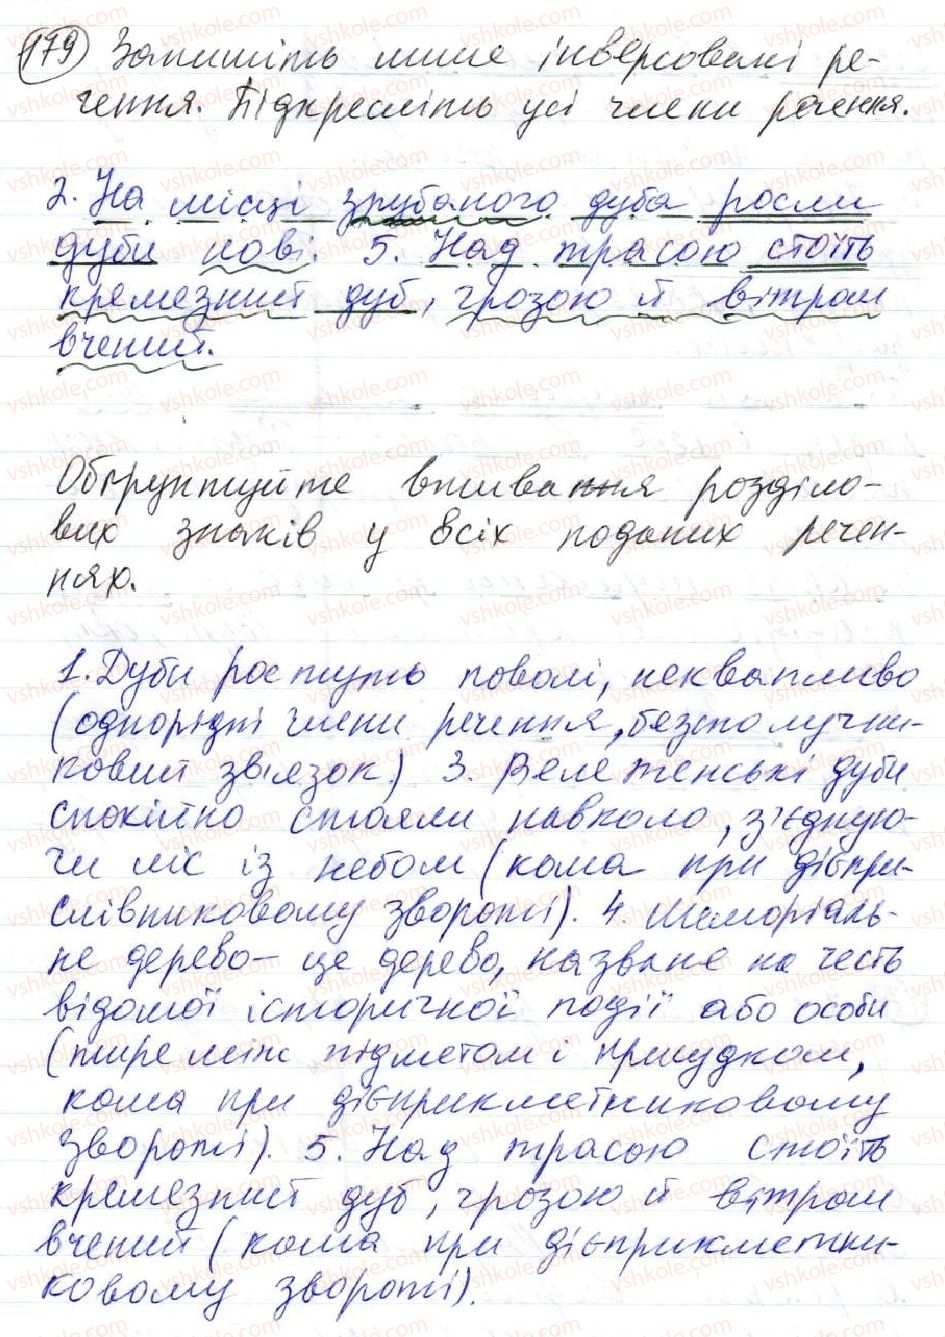 179 Запишіть лише інверсовані ре-
чення. Підкресліть усі члени речення.
2. На місці зрубаного дуба росли
дуби нові. 5. Над трасою стоїть
кремезний дуб, грозою й вітром
вчений.
Обґрунтуйте вживання розділо-
вих знаків у всіх поданих речен-
нях.
1. Дуби ростуть поволі, неквапливо
(однорідні члени речення, безсполучни-
ковий зв'язок) 3. Велетенські дуби
спокійно стояли навколо, з'єдную-
чи ліс із небом (кома при дієпри-
слівниковому звороті). 4. Меморіаль-
не дерево – це дерево, назване на честь
відомої історичної події або особи
(тире між підметом і присудком,
кома при дієприкметниковому
звороті). 5. Над трасою стоїть
кремезний дуб, грозою й вітром
вчений (кома при дієприкметни-
ковому звороті).